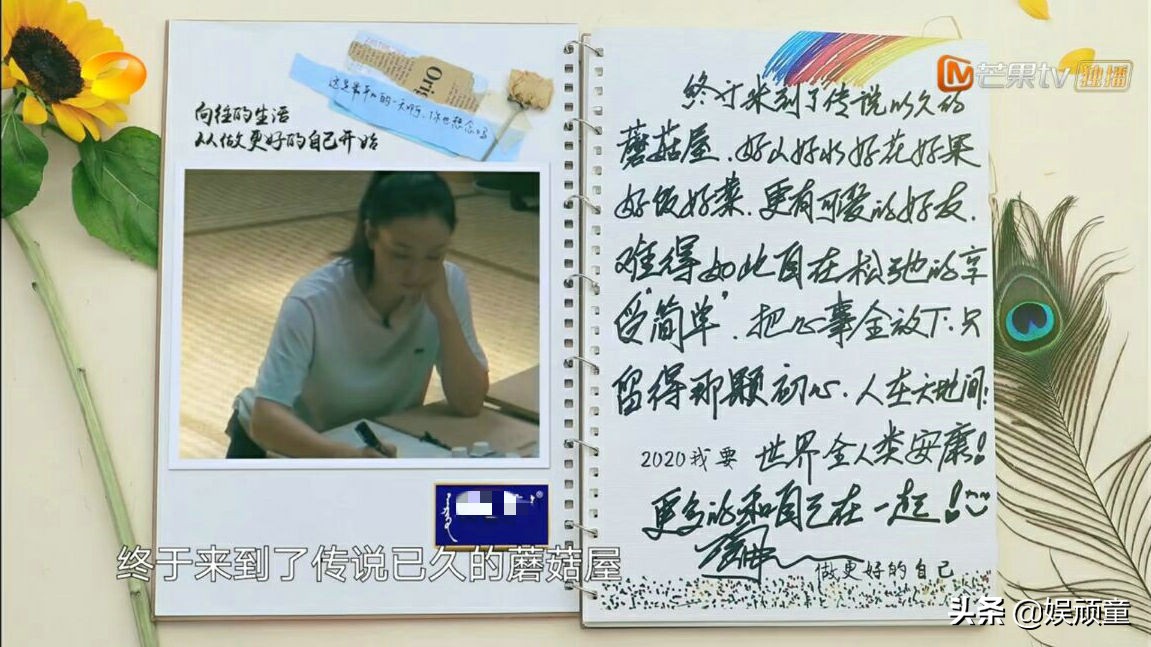 芒果tv 独播
向往的生活
从做更好的自己开始
终于来到了传说以久的
蘑菇屋、好山好水好花好果
好饭好菜、更有可爱的好友、
难得如此自在松弛的享
受"简单"、把心事全放下:只
留得那颗初心、人在天地间!
2020我要 世界全人类安康!
更多的和自己在一起!
做更好的自己
终于来到了传说已久的蘑菇屋
头条 @娱顽童